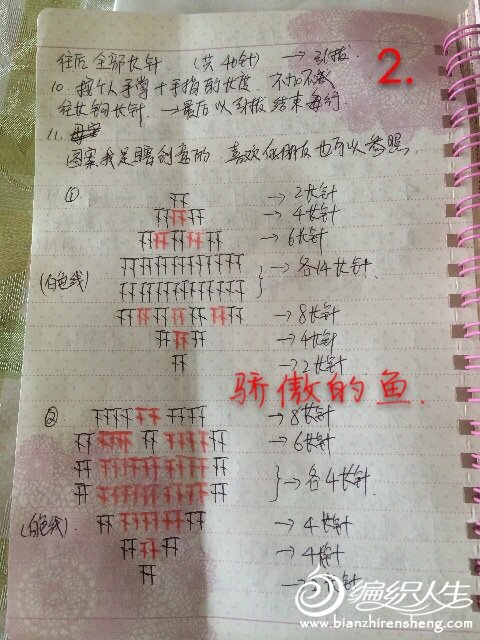 往后全部长针 (共40针) → 引拔.
2.
10. 按个人手掌+手指的长度, 不加不减
往长钩长针 → 最后以引拔结束每行.
11.
图案我是瞎创意的. 喜欢你朋友也可以参照.
① → 2长针
→ 4长针
→ 6长针
(白色线) → 各14长针.
→ 8长针
→ 4长针
→ 2长针
骄傲的鱼.
② → 8长针
→ 6长针
→ 各4长针
(白色线). → 4长针
→ 4长针
编织人生
www.bianzhirensheng.com